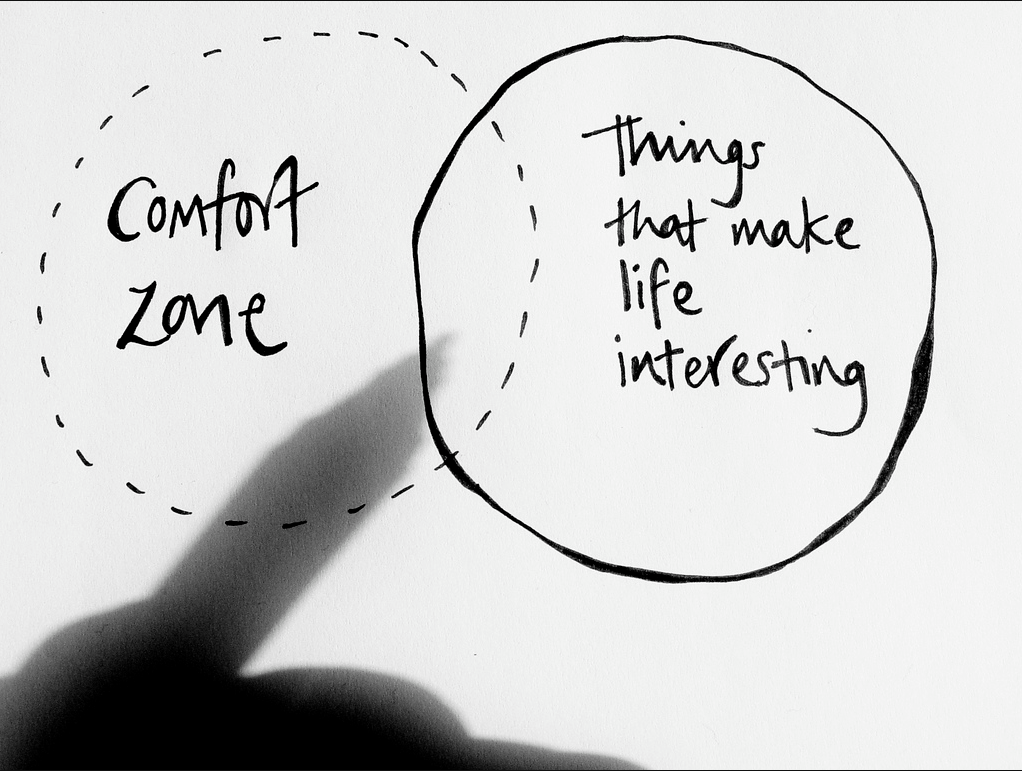 Comfort
Zone
Things
that make
life
interesting